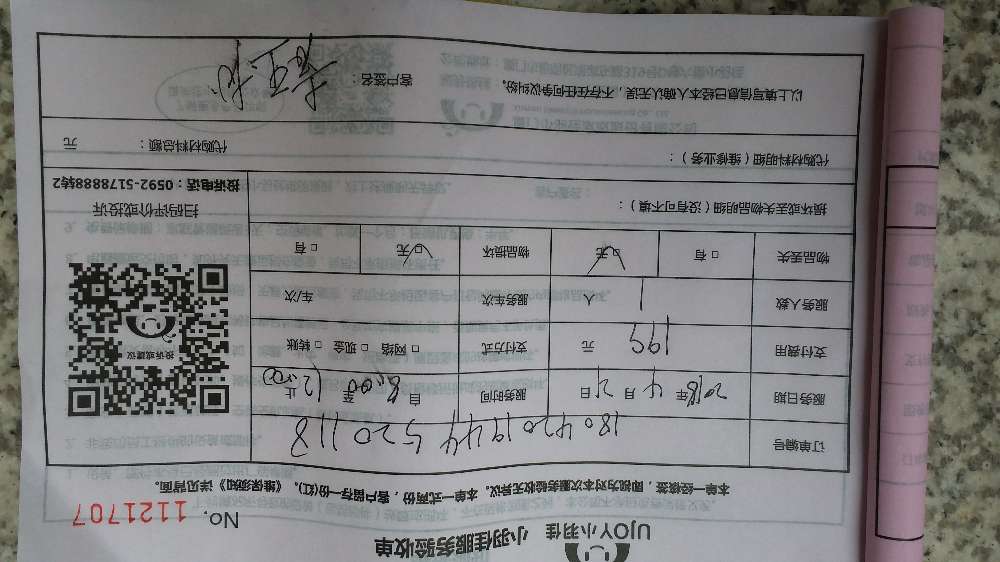 UJOY小羽佳
小羽佳服务验收单
No. 1121707
本单一经核签，即视为对本次服务验收无异议。本单一式两份，客户留存一份(红)。《维保须知》详见背面。
订单编号 180420194452 0118
服务日期 2018年4月21日 服务时间 自8:00至12:00止
支付费用 199元 支付方式 □网络 □现金 □转账
服务人数 1人 服务车次 车/次
物品丢失 □有 □无 物品损坏 □无 □有
损坏或丢失物品明细（没有可不填）：
投诉或建议
扫码评价或投诉
投诉电话：0592-5178888转2
代购材料明细（维修业务）： 代购材料总额： 元
以上填写信息已经本人确认无误，不存在任何争议纠纷。 客户签名：